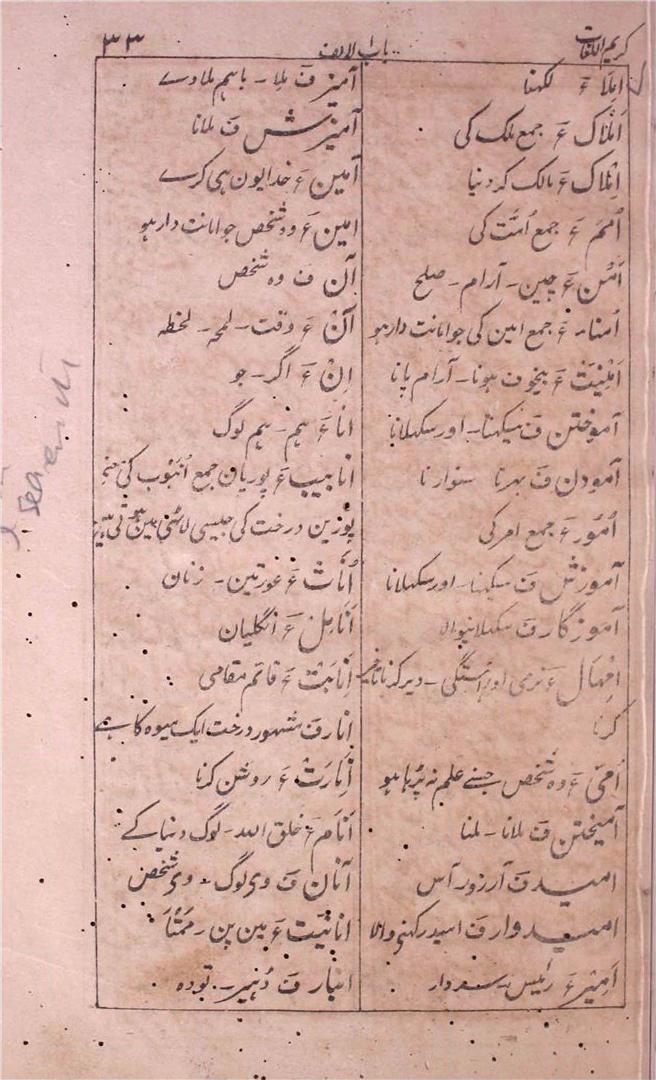 کریم اللغات
باب الالف
۳۳
اِملَا ءَ لکھنا
اَملَاک ءَ جمع ملک کی
اِملَاک ءَ مالک کر دنیا
اُمَم ءَ جمع اُمَّت کی
اَمْن ءَ چین۔ آرام۔ صلح
اُمنا۔ ءَ جمع امین کی جو امانت دار ہو
اَمْنِیَت ءَ بیخوف ہونا۔ آرام پانا
آموختن فَ سیکہنا۔ اور سکہلانا
آمودن فَ بہرنا سنوارنا
اُمُور ءَ جمع امر کی
آموزش فَ سکہنا۔ اور سکہلانا
آموزگار فَ سکہلانیوالا
اِمْہَال ءَ نرمی اور آہستگی۔ دیر کرنا تاخیر
کرنا
اُمّی ءَ وہ شخص جسنے علم نہ پڑہا ہو
آمیختن فَ ملانا۔ ملنا
امید فَ آرزو۔ آس
امیدوار فَ امید رکہنی والا
اَمِیْر ءَ رئیس۔ سردار
آمیز فَ ملا۔ باہم ملادے
آمیزش فَ ملانا
آمین ءَ خدا یون ہی کرے
امین ءَ وہ شخص جو امانت دار ہو
آن فَ وہ شخص
آنْ ءَ وقت۔ لمحہ۔ لحظہ
اِنْ ءَ اگر۔ جو
انا ءَ ہم۔ ہم لوگ
انابیب ءَ پوریان جمع اُنبُوب کی
پوزین درخت کی جیسی لاٹھی مین ہوتی ہے
اُنَاث ءَ عورتین۔ زنان
اَنَامِل ءَ انگلیان
اِنَابَتْ ءَ قائم مقامی
انار فَ مشہور درخت ایک میوہ کا ہے
اِنَارَتْ ءَ روشن کرنا
اَنَام ءَ خلق اللہ۔ لوگ دنیا کے
آنان فَ وی لوگ۔ وی شخص
انانیت ءَ مین پن۔
انبار فَ ڈہیر۔ تودہ